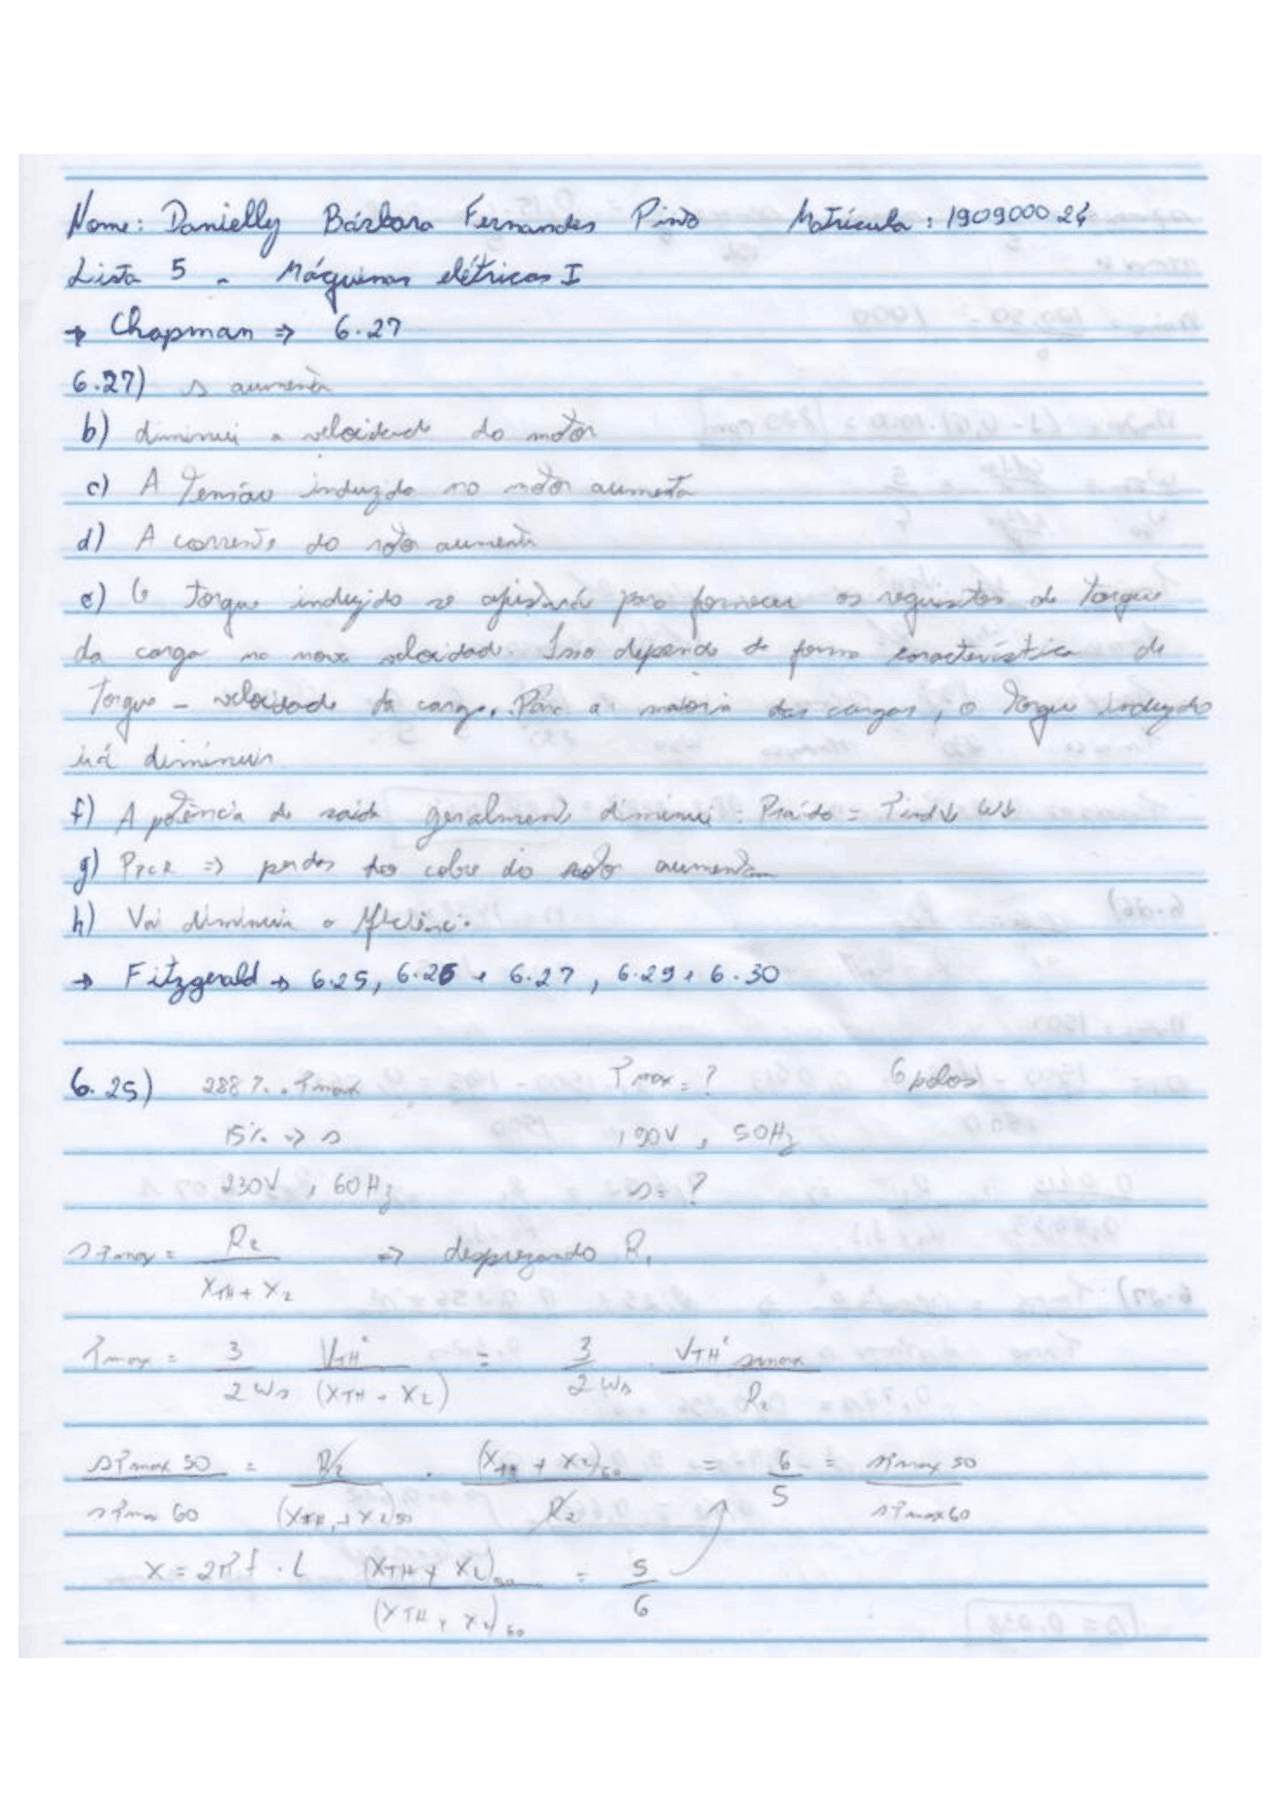 Nome: Danielly Bárbara Fernandes Pinto Matrícula: 190900024
Lista 5 - Máquinas elétricas I
→ Chapman ⇒ 6.27
6.27) s aumenta
b) diminui a velocidade do motor
c) A Tensão induzida no rotor aumenta
d) A corrente do rotor aumenta
e) O Torque induzido se ajustará para fornecer os requisitos de Torque
da carga na nova velocidade. Isso depende da forma característica de
Torque - velocidade da carga. Para a maioria das cargas, o Torque induzido
irá diminuir
f) A potência de saída geralmente diminui: Psaída = Tind↓ W↓
g) PPCR ⇒ perdas no cobre do rotor aumentam
h) Vai diminuir a eficiência.
→ Fitzgerald → 6.25, 6.26 e 6.27, 6.29 e 6.30
6.25) 288%. Tmax Tmax = ? 6 polos
15% ⇒ s 190V, 50Hz
230V, 60Hz s = ?
sTmax = R2 / (XTH + X2) ⇒ desprezando R1
Tmax = 3/(2Ws) VTH²/(XTH + X2) = 3/(2Ws) . VTH² smax/R2
sTmax 50/sTmax 60 = R2/(XTH + X2)50 . (XTH + X2)60/R2 = 6/5 = sTmax 50/sTmax 60
X = 2πf . L (XTH + X2)50/(XTH + X2)60 = 5/6